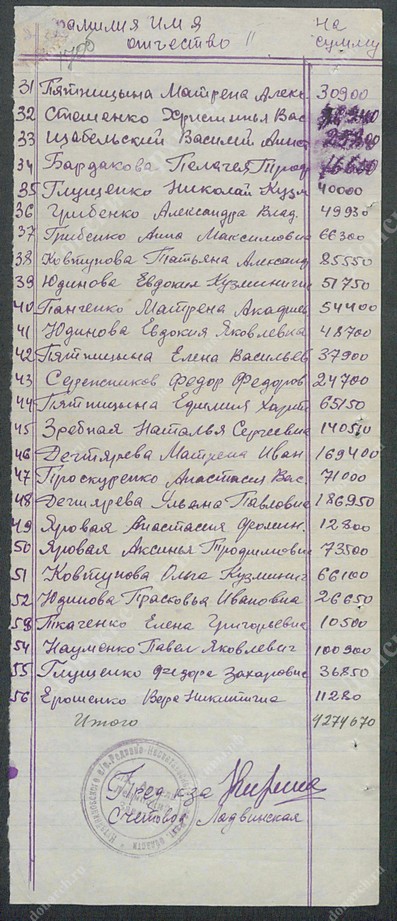 Фамилия Имя
отчество
На
сумму
31 Пятницына Матрена Алекс 30900
32 Стешенко Христинья Вас
33 Щабельский Василий
34 Бардакова Пелагея Троф 16600
35 Глущенко Николай Кузм 40000
36 Грибенко Александра Влад. 49930
37 Грибенко Анна Максимовн 66300
38 Ковтунова Татьяна Александ 85550
39 Юдинова Евдокия Кузминиги 51750
40 Панченко Матрена Акадиев 54400
41 Юдинова Евдокия Яковлевна 48700
42 Пятницына Елена Васильев 37900
43 Серепсников Федор Федоров 24700
44 Пятницына Ефимия Харит 65150
45 Зребная Наталья Сергеевн
46 Дегтярева Матрена Иван 169400
47 Проскуренко Анастасия Вас. 71000
48 Дегтярева Ульяна Павловн 186950
49 Яровая Анастасия Фролин. 12800
50 Яровая Аксинья Трофимовн 73500
51 Ковтунова Ольга Кузминиг 66100
52 Юдинова Прасковья Ивановна 26650
53 Ткаченко Елена Григорьевн 10500
54 Науменко Павел Яковлевич 100900
55 Глущенко Федора Захаровн 36850
56 Ерошенко Вера Никитигна 11280
Итого 4274670
Пред к-за
Счетовод Ладвинская